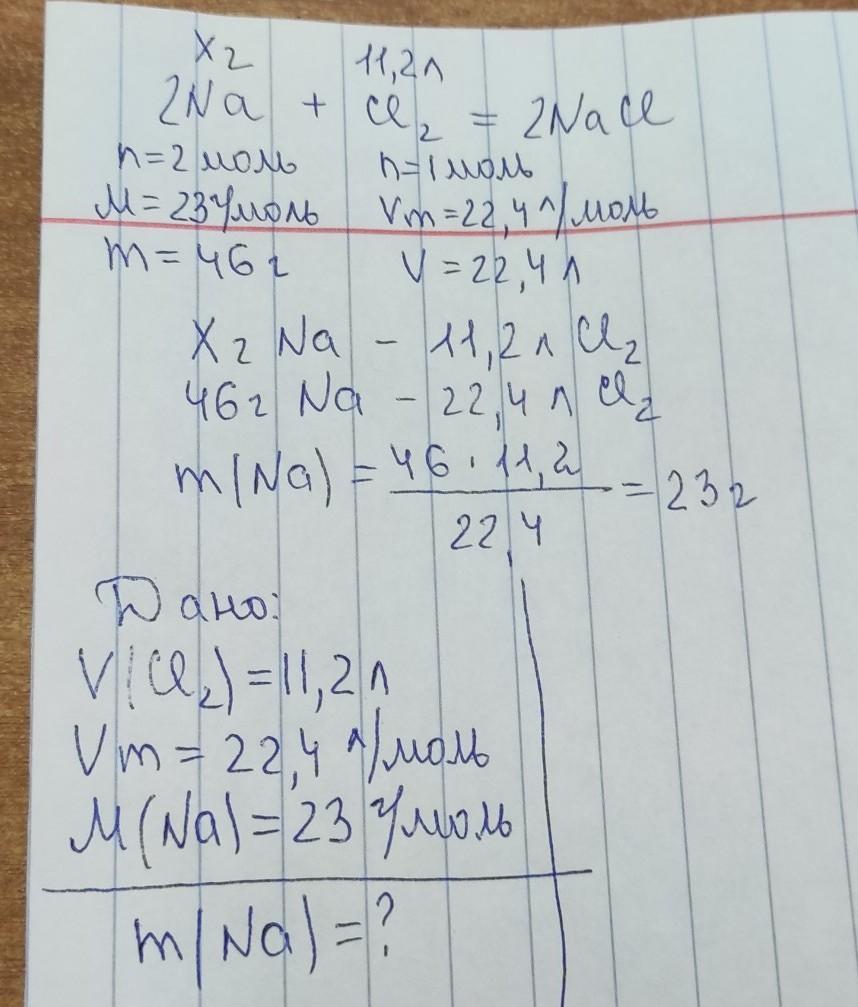 x г 11,2 л
2Na + Cl₂ = 2NaCl
n = 2 моль n = 1 моль
M = 23 г/моль Vm = 22,4 л/моль
m = 46 г V = 22,4 л
x г Na - 11,2 л Cl₂
46 г Na - 22,4 л Cl₂
m(Na) = 46 · 11,2 / 22,4 = 23 г
Дано:
V(Cl₂) = 11,2 л
Vm = 22,4 л/моль
M(Na) = 23 г/моль
m(Na) = ?